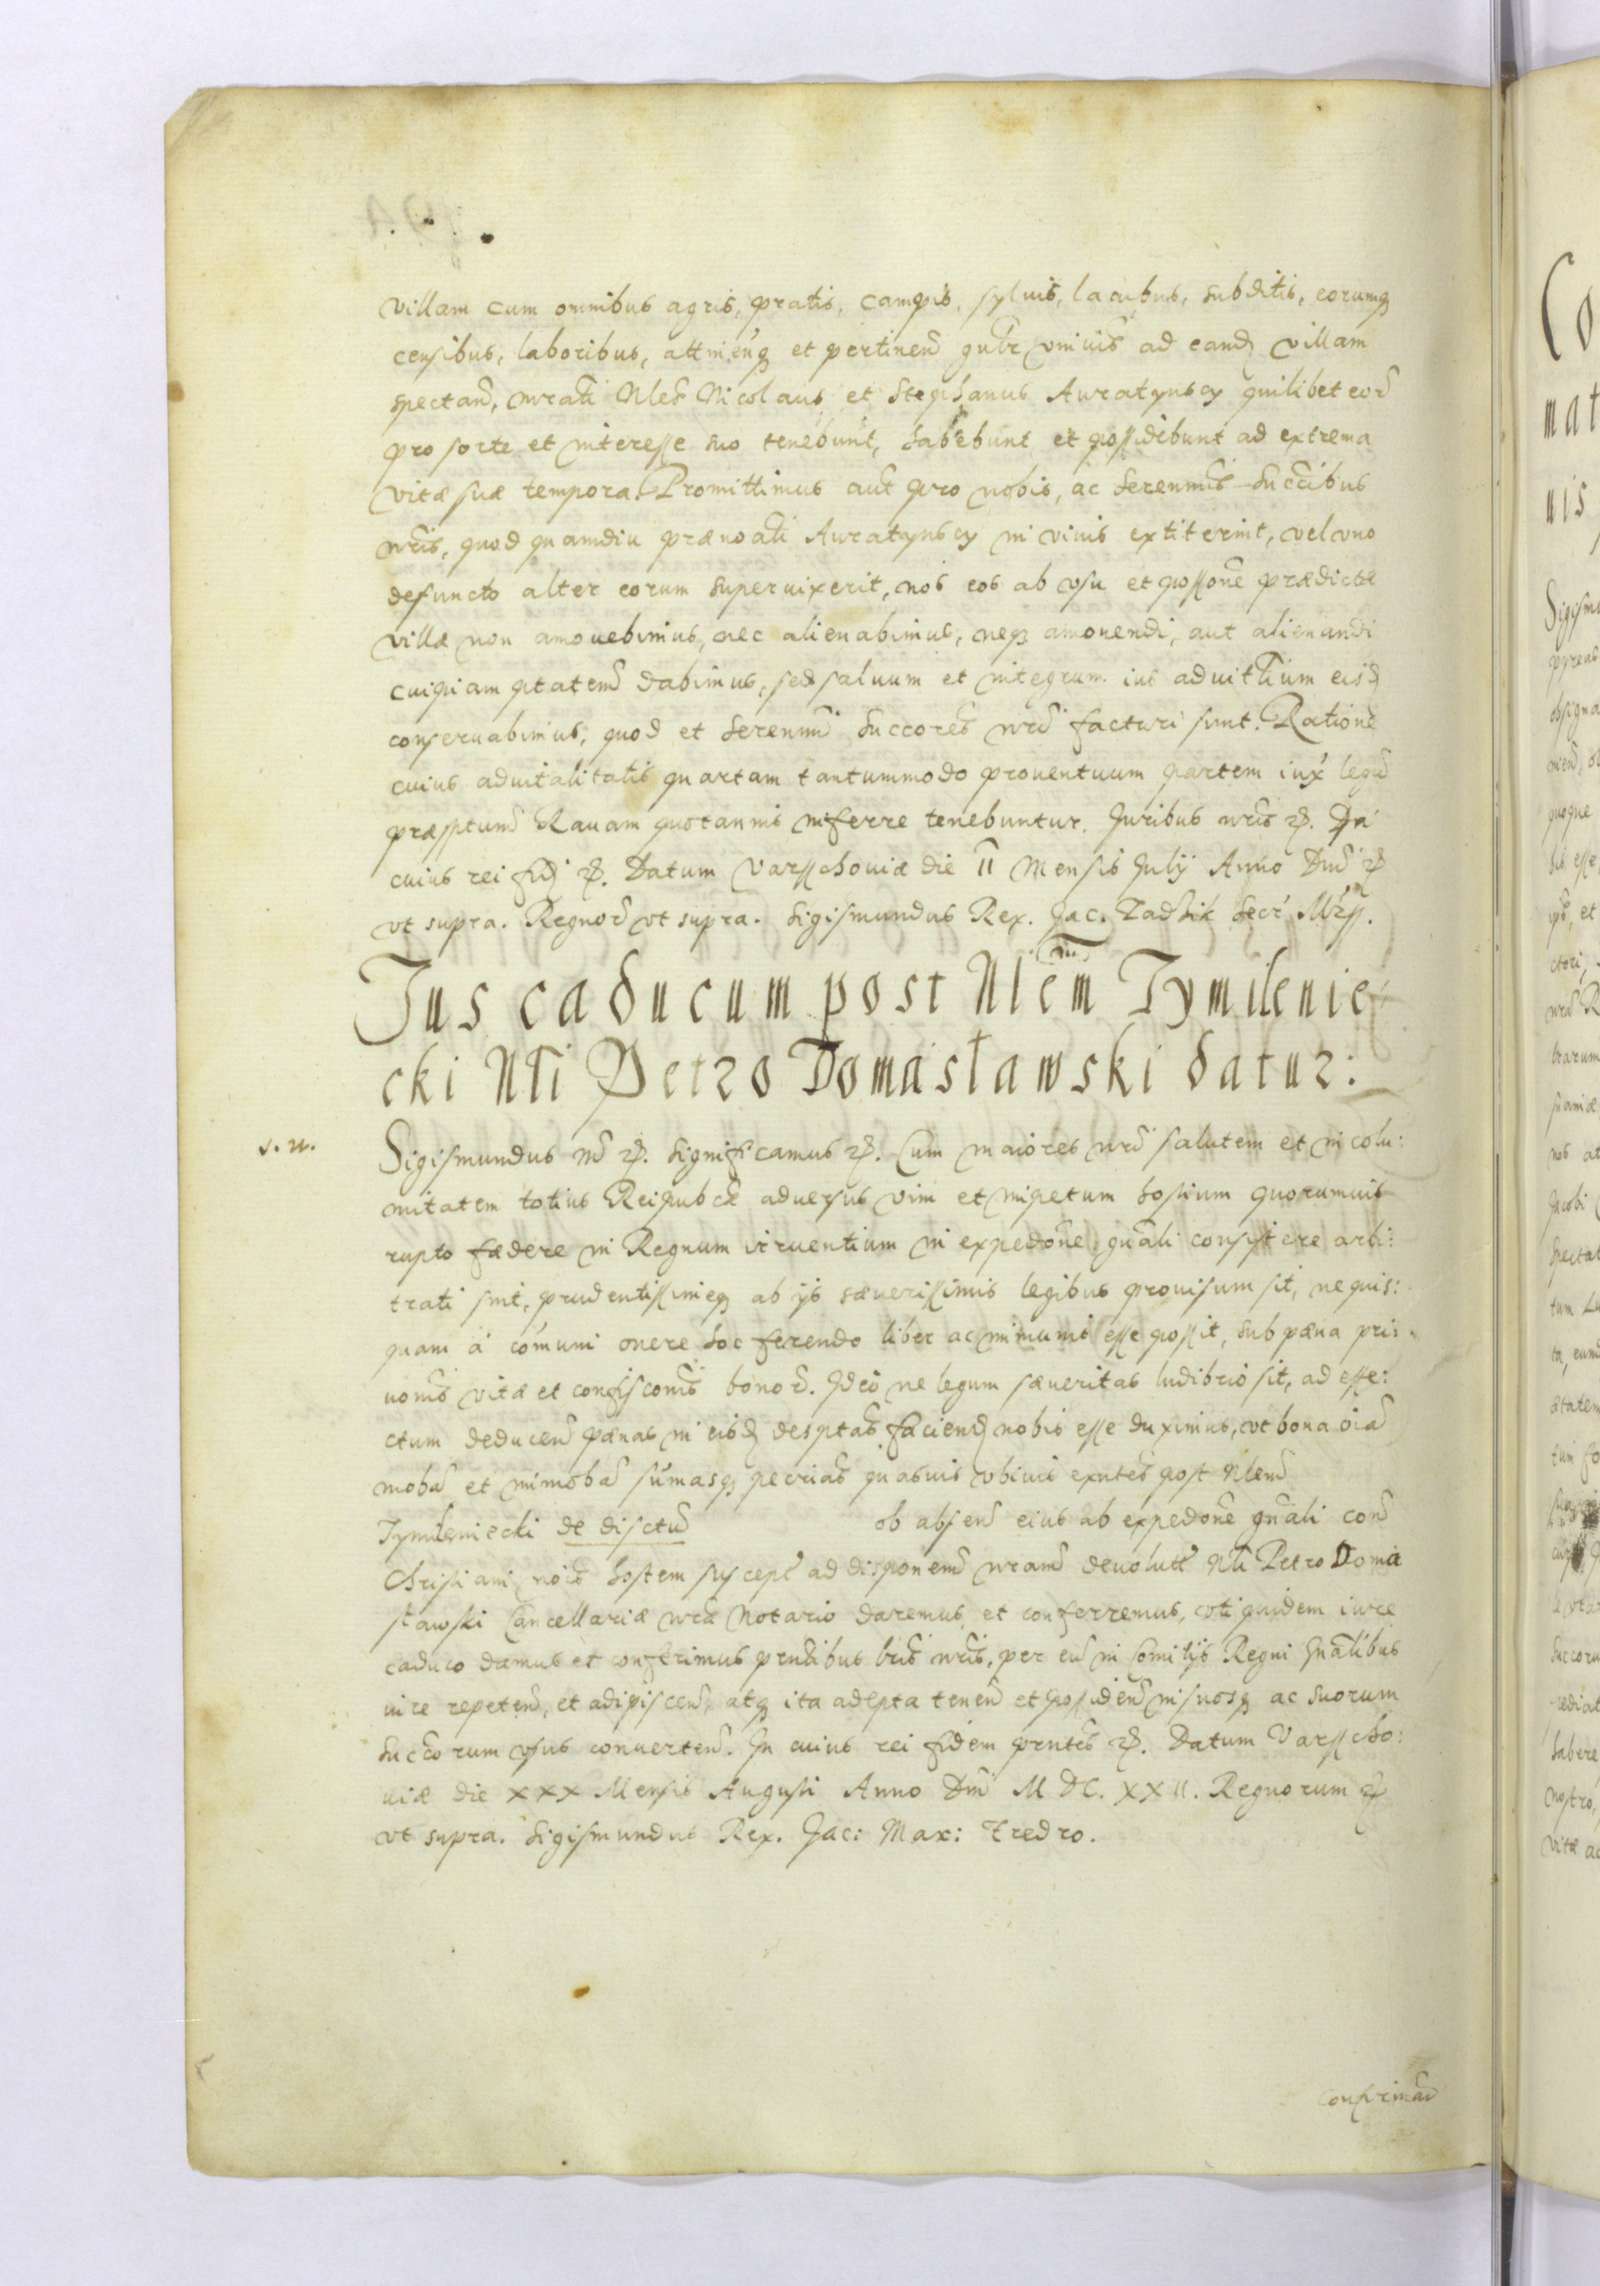 villam cum omnibus agris, pratis, campis, syluis, lacibus, subditis, eorumq
censibus, laboribus, attinenq et pertinen gnlr vniuis ad eand villam
spectan, mrati Nles Nicolaus et Stephanus Awratynscy quilibet eor
pro sorte et interesse suo tenebunt, habebunt et possidebunt ad extrema
vitæ suæ tempora. Promittimus aut pro nobis, ac Serenmis Succibus
nris, quod quamdiu prænoati Awratynscy in viuis extiterint, vel vno
defuncto alter eorum superuixerit, nos eos ab vsu et possone prædictæ
villæ non amouebimus, nec alienabimus, neq amouendi, aut alienandi
cuipiam ptatem dabimus, sed saluum et integrum ius aduitlium eisd
conseruabimus, quod et Serenmi Succores nri facturi sunt. Ratione
cuius aduitalitatis quartam tantummodo prouentuum partem iux legu
præsptum Rauam quotannis inferre tenebuntur. Juribus nris &.
cuius rei fid &. Datum Varsschouiæ die II Mensis July Anno Dni &
vt supra. Regnor vt supra. Sigismundus Rex. Jac. Zadzik Secr Mrss.
Jus caducum post Nlem Tymilenie
cki Nli Petro Domasławski datur:
s. n.
Sigismundus III &. Significamus &. Cum maiores nri salutem et incolu:
mitatem totius Reipubcæ aduersus vim et impetum hostium quorumuis
rupto fœdere in Regnum irruentium in expedone gnali consistere arbi:
trati sint, prudentissimeq ab ijs sæuerissimis legibus prouisum sit, ne quis:
quam á comuni onere hoc ferendo liber ac immunis esse possit, sub pæna pri:
uonis vitæ et confisconis bonor. Ideo ne legum sæueritas ludibrio sit, ad effe:
ctum deducen pænas in eisd desptas faciend nobis esse duximus, vt bona oia
mobia et immobia sumasq pecrias quasuis vbiuis exntes post Nlem
Tymileniecki de disctu ob absen eius ab expedone gnali con
Christiani nois hostem suscepta ad disponem nram deuoluta Nli Petro Doma
sławski Cancellariæ nræ Notario daremus et conferremus, vti quidem iure
caduco damus et conferimus prntibus lris nris, per eu in Comitijs Regni Gnalibus
iure repeten, et adipiscen, atq ita adepta tenen et possiden in suosq ac suorum
succorum vsus conuerten. In cuius rei fidem prntes &. Datum Varsscho:
uiæ die XXX Mensis Augusti Anno Dni M DC. XXII. Regnorum &
vt supra. Sigismundus Rex. Jac: Max: Fredro.